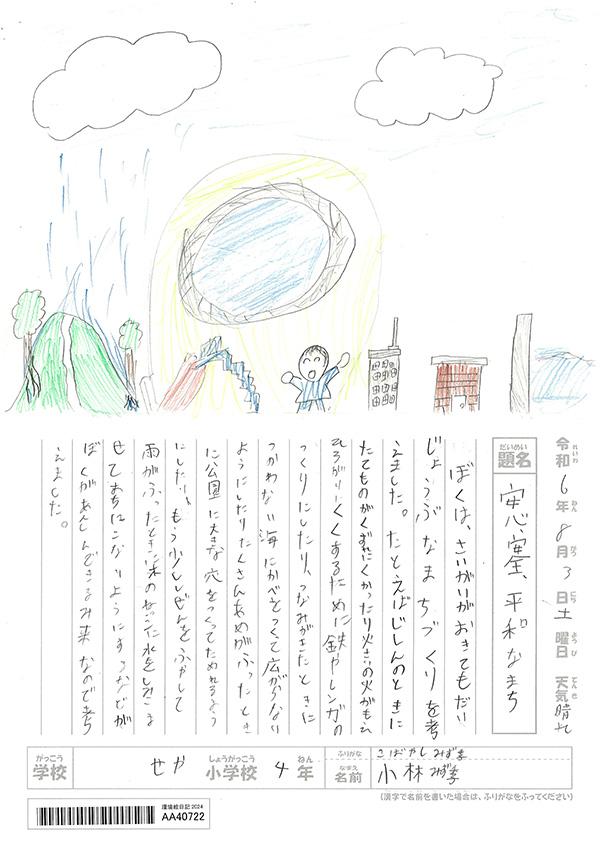 令和6年8月3日土曜日 天気晴れ
れいわ ねん がつ にち ようび てんき
だいめい
題名 安心、安全、平和なまち
ぼくは、さいがいがおきてもだい
じょうぶなまちづくりを考
えました。たとえばじしんのときに
たてものがくずれにくかったり火さいの火がもえ
ひろがりにくくするために鉄やレンガの
つくりにしたり、つなみがきたときに
つかわない海にかべをつくって広がらない
ようにしたりたくさんあめがふったとき
に公園に大きな穴をつくってためれるよう
にしたり、もう少ししぜんをふやして
雨がふったときに木の
せておちにこないようにするなどが
ぼくがあんしんできるみ来なので考
えました。
がっこう
学校 せや 小学校 4年
しょうがっこう ねん
ふりがな こばやし みずき
なまえ
名前 小林
(漢字で名前を書いた場合は、ふりがなをふってください)
環境絵日記 2024
AA40722